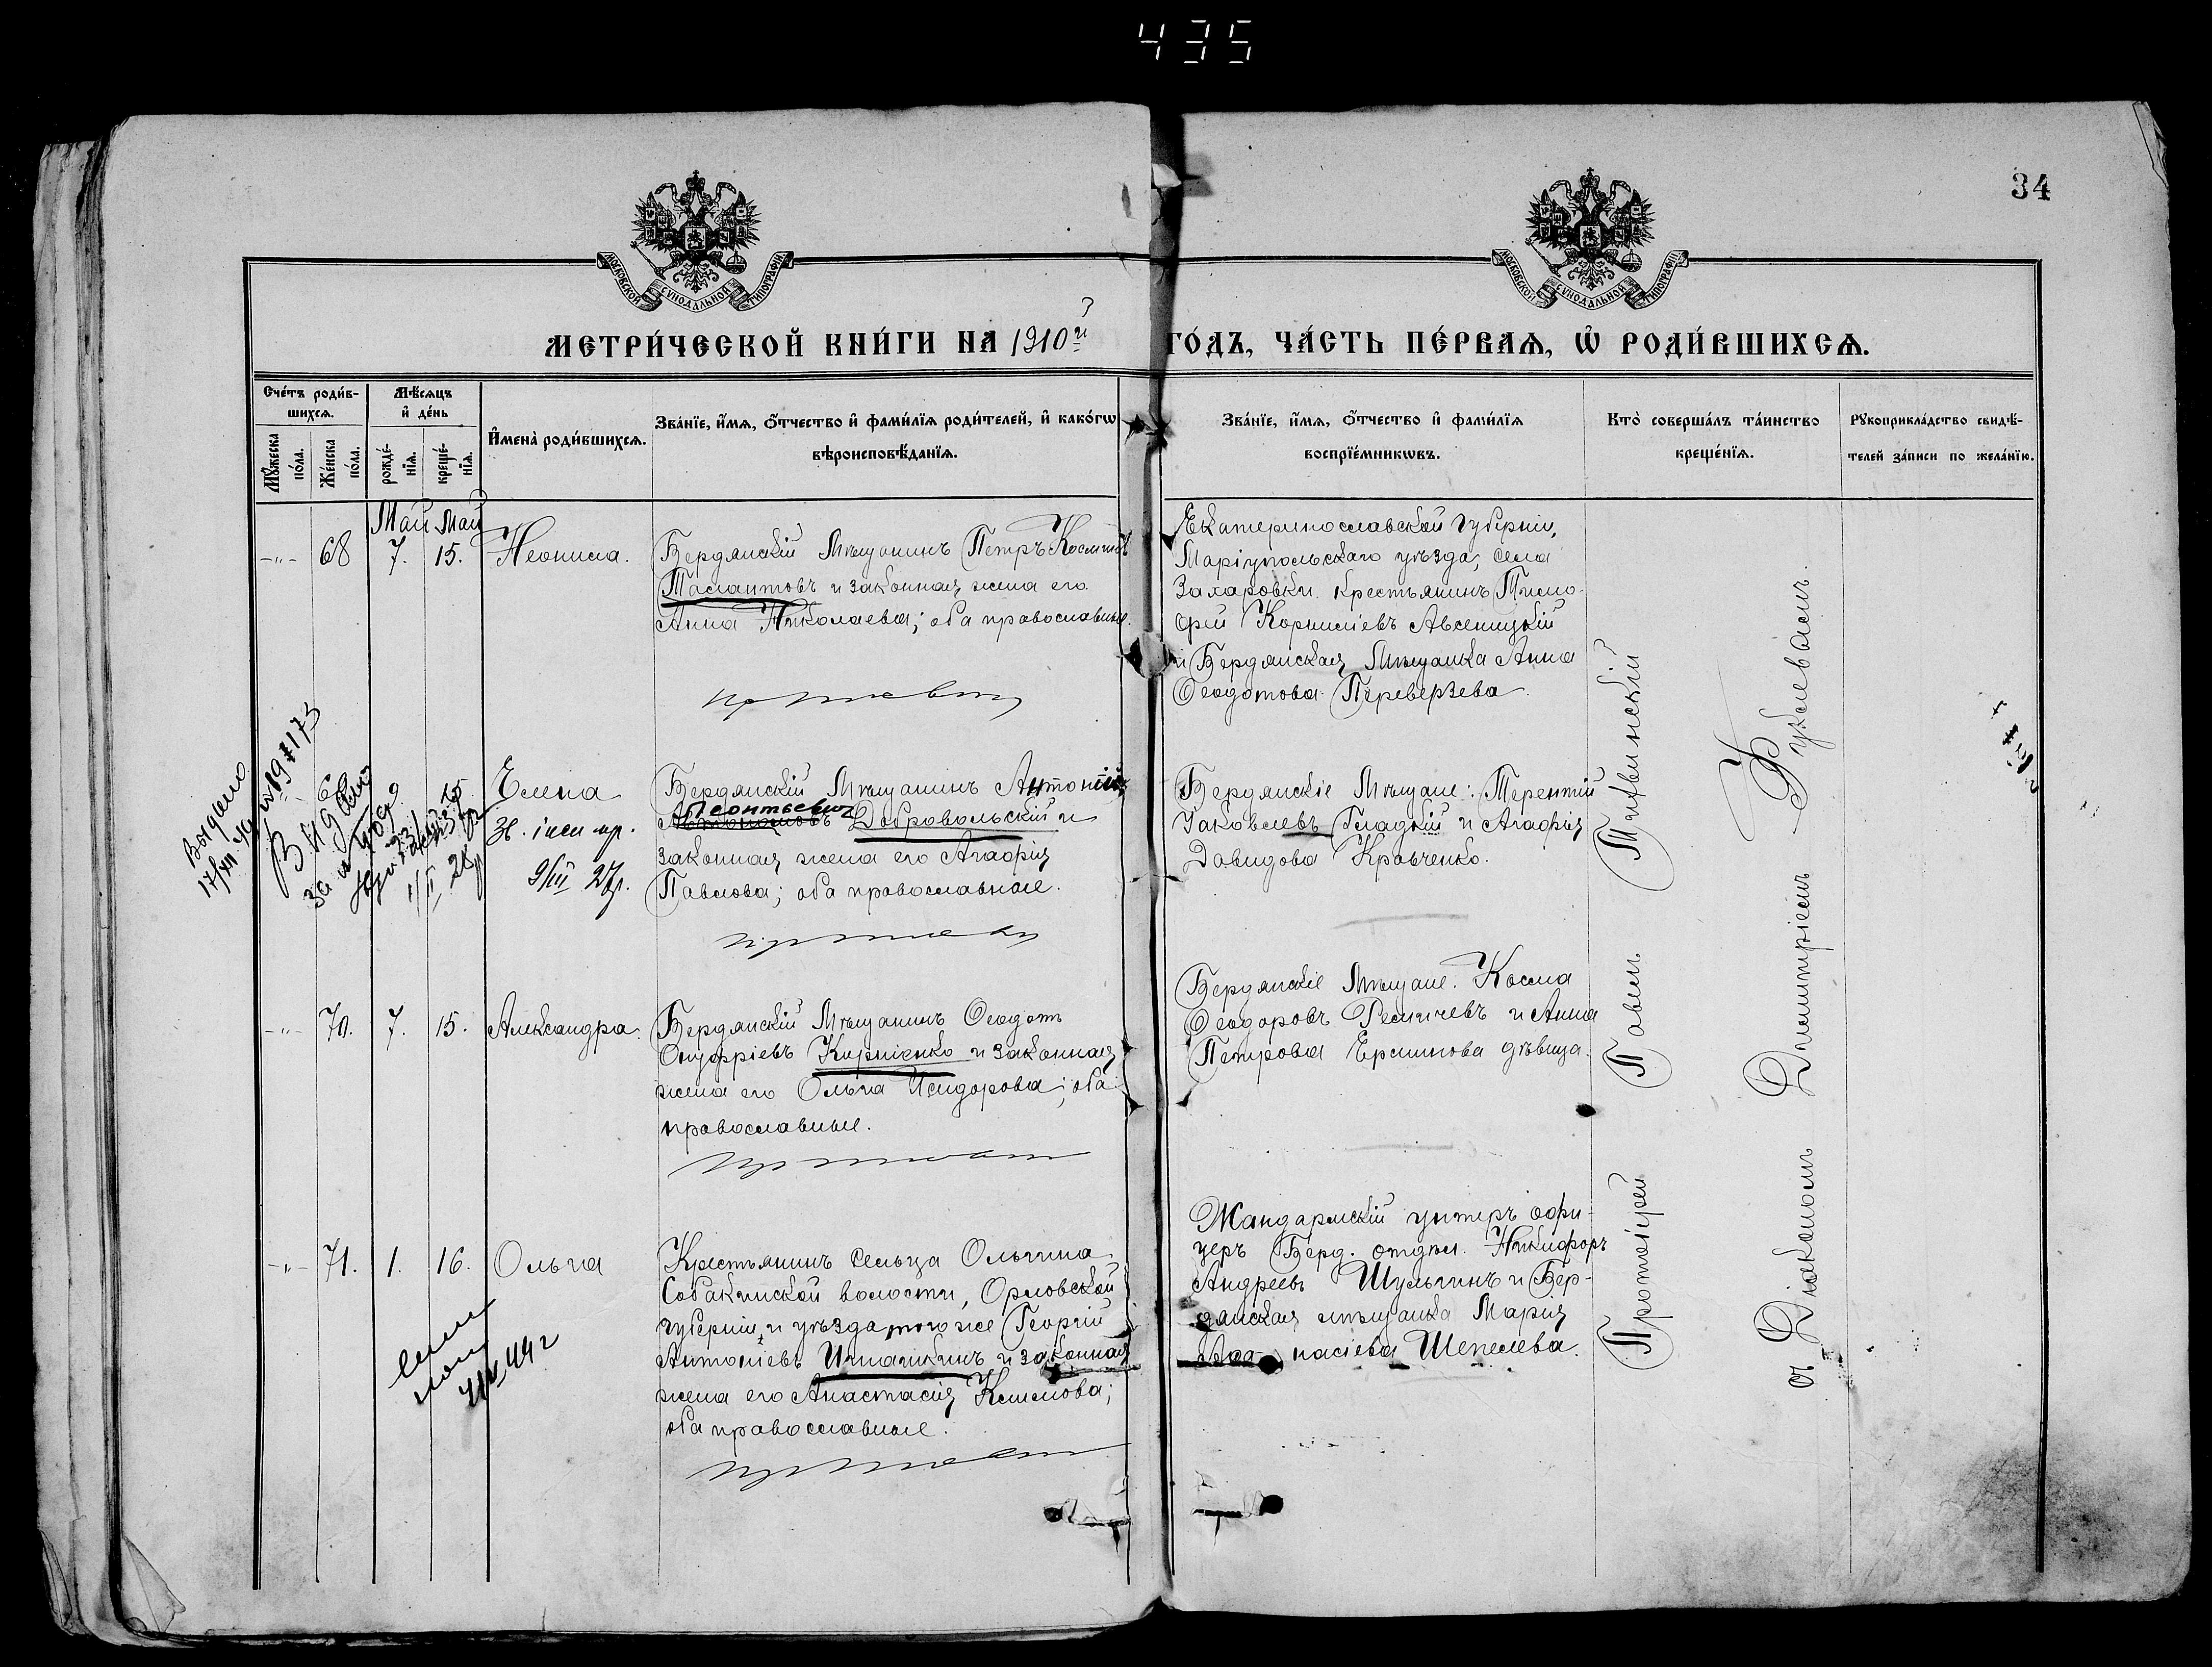 435
34
МОСКОВСКОЙ СѴНОДАЛЬНОЙ ТИПОГРАФІИ
МОСКОВСКОЙ СѴНОДАЛЬНОЙ ТИПОГРАФІИ
МЕТРИ́ЧЕСКОЙ КНИ́ГИ НА 1910й ГО́ДЪ, ЧА́СТЬ ПЕ́РВАѦ, Ѡ РОДИ́ВШИХСѦ.
Сче́тъ роди́в-
шихсѧ.
Мꙋ́жеска
по́ла.
Же́нска
по́ла.
Мѣ́сѧцъ
и҆ де́нь
рожде́-
нїѧ.
креще́-
нїѧ.
И҆мена̀ роди́вшихсѧ.
Зва́нїе, и҆́мѧ, ѻ҆́тчество и҆ фами́лїѧ роди́телей, и҆ како́гѡ
вѣроисповѣ́данїѧ.
Зва́нїе, и҆́мѧ, ѻ҆́тчество и҆ фами́лїѧ
воспрїе́мникѡвъ.
Кто̀ соверша́лъ та́инство
креще́нїѧ.
Рꙋкоприкла́дство свидѣ́-
телей за́писи по жела́нїю.
Май Май
-"- 68 7. 15. Неонила.
Бердянскій Мѣщанинъ Петръ Косминъ
Таслантовъ и законная жена его
Анна Николаевна; оба православные.
Екатеринославской губерніи,
Маріупольскаго уѣзда, села
Захаровки крестьянинъ Тимо-
фей Корниліевъ Авсеницкій
и Бердянская Мѣщанка Анна
Ѳеодотова Переверзева.
Выдано
Елена
9/III 27г.
Бердянскій Мѣщанинъ Антоній
Леонтьевъ
Добровольскій и
законная жена его Агафія
Павлова; оба православные.
Бердянскіе Мѣщане: Терентій
Іаковлевъ Гладкій и Агафія
Давидова Кравченко.
-"- 70. 7. 15. Александра.
Бердянскій Мѣщанинъ Ѳеодотъ
Онуфріевъ Кирпіенко и законная
жена его Ольга Исидорова; оба
православные.
Бердянскіе Мѣщане: Косма
Ѳеодоровъ и Анна
Петрова дѣвица.
-"- 71. 1. 16. Ольга
Крестьянинъ Сельца Ольгина
Собакинской волости, Орловской
губерніи и уѣзда, того же Георгій
Антоніевъ Игнашкинъ и законная
жена его Анастасія
оба православные.
Жандармскій унтеръ офи-
церъ Берд. отдѣл. Никифоръ
Андреевъ Шульгинъ и Бер-
дянская мѣщанка Марія
насіева Шепелева.
Протоіерей Павелъ
съ Діакономъ Димитріемъ